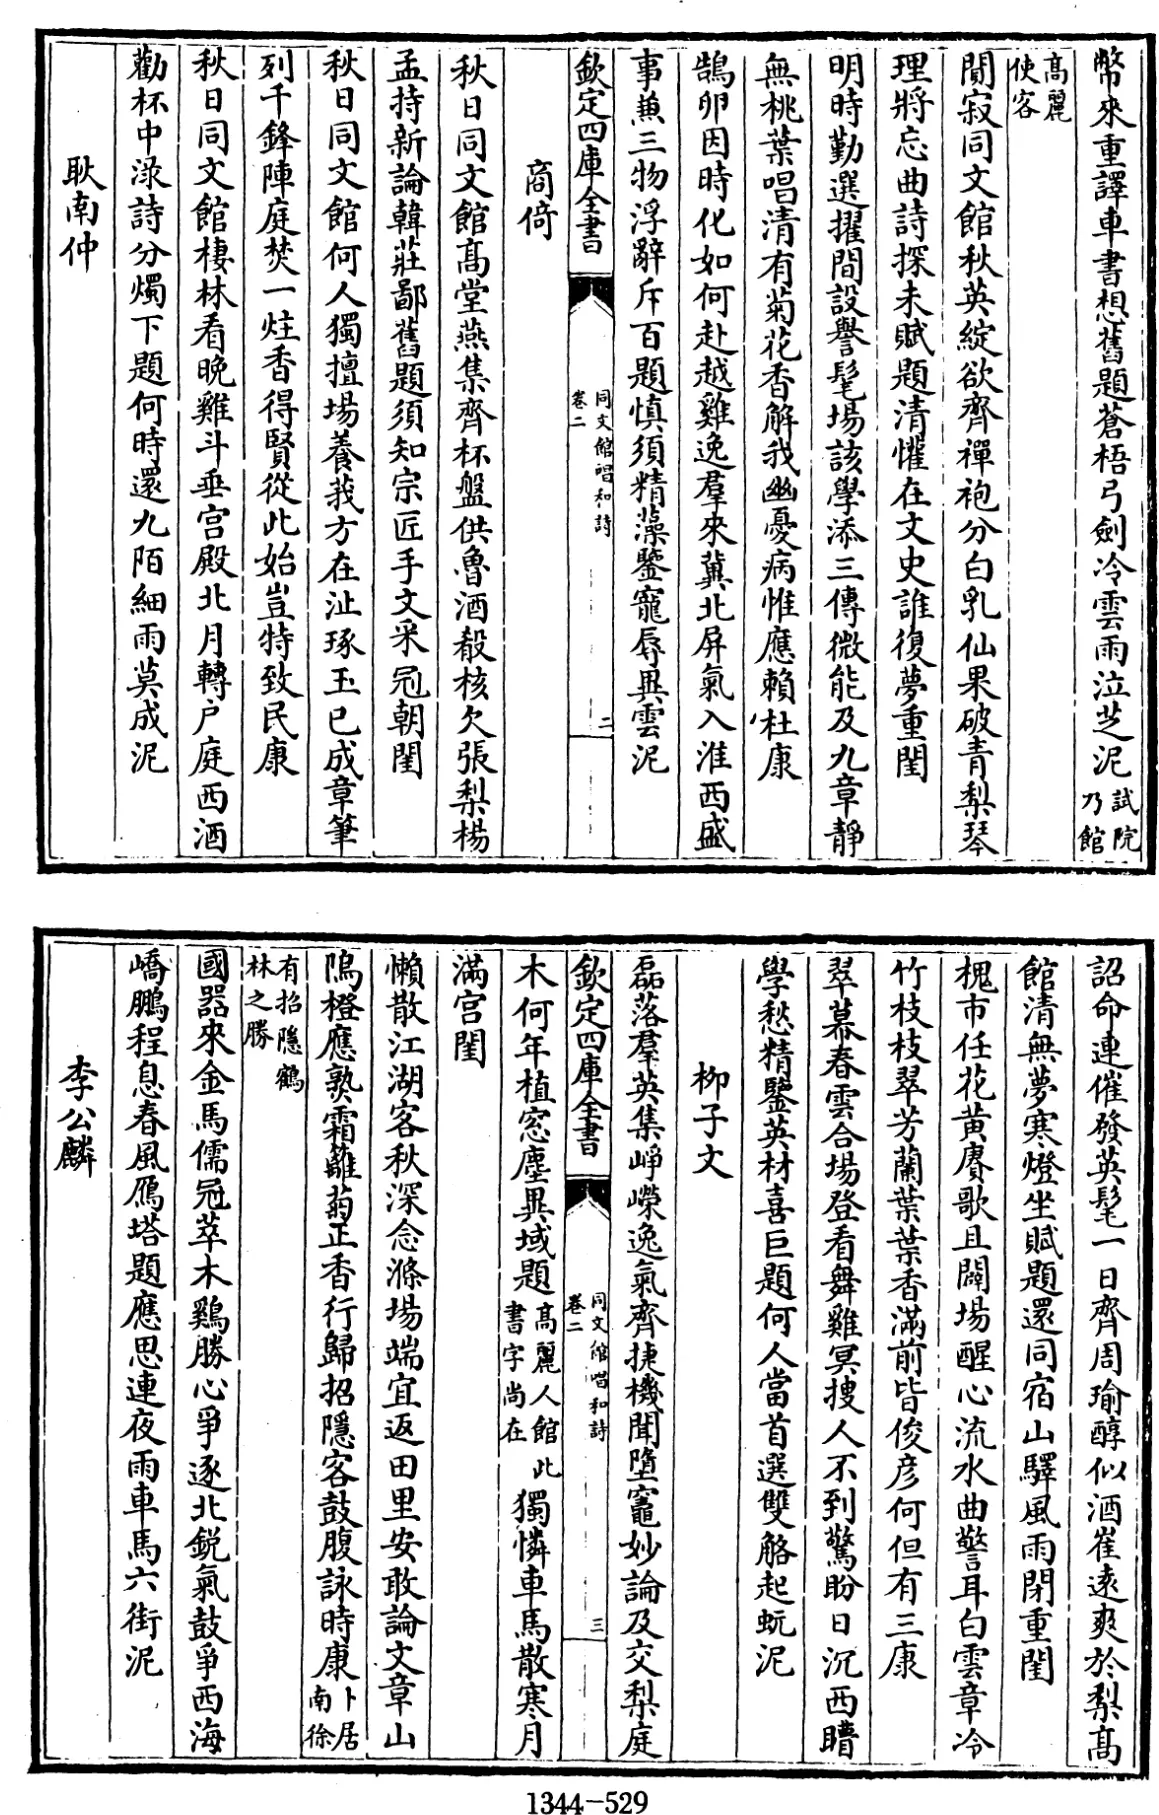 幣來重譯車書想舊題蒼梧弓劍冷雲雨泣芝泥試院
乃館
高麗
使客
閒寂同文館秋英綻欲齊禪袍分白乳仙果破青梨琴
理將忘曲詩探未賦題清懽在文史誰復夢重閨
明時勤選擢間設譽髦場該學添三傳微能及九章靜
無桃葉唱清有菊花香解我幽憂病惟應賴杜康
鵠卵因時化如何赴越雞逸羣來冀北屏氣入淮西盛
事兼三物浮辭斥百題慎須精藻鑒寵辱異雲泥
欽定四庫全書
同文館唱和詩
卷二
二
商倚
秋日同文館高堂燕集齊杯盤供魯酒殽核欠張梨楊
孟持新論韓莊鄙舊題須知宗匠手文采冠朝閨
秋日同文館何人獨擅場養莪方在沚琢玉已成章筆
列千鋒陣庭焚一炷香得賢從此始豈特致民康
秋日同文館棲林看晚雞斗垂宫殿北月轉户庭西酒
勸杯中淥詩分燭下題何時還九陌細雨莫成泥
耿南仲
詔命連催發英髦一日齊周瑜醇似酒崔遠爽於梨髙
館清無夢寒燈坐賦題還同宿山驛風雨閉重閨
槐市任花黄賡歌且闢場醒心流水曲警耳白雲章冷
竹枝枝翠芳蘭葉葉香滿前皆俊彦何但有三康
翠幕春雲合塲登看舞雞冥搜人不到驚盼日沉西瞔
學愁精鑒英材喜巨題何人當首選雙觡起蚖泥
柳子文
磊落羣英集崢嶸逸氣齊捷機聞墮竈妙論及交梨庭
欽定四庫全書
同文館唱和詩
卷二
三
木何年植窓塵異域題高麗人館此
書字尚在
獨憐車馬散寒月
滿宫閨
懶散江湖客秋深念滌場端宜返田里安敢論文章山
隝橙應熟霜籬菊正香行歸招隱客鼓腹詠時康卜居
南徐
有招隱鶴
林之勝
國器來金馬儒冠萃木鷄勝心爭逐北銳氣鼓爭西海
嶠鵬程息春風鴈塔題應思連夜雨車馬六街泥
李公麟
1344-529